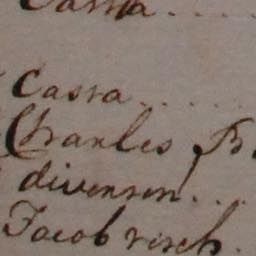 Cassa . . . .
Cassa . . . . .
Charles B.
diversen . . .
Jacob visch .